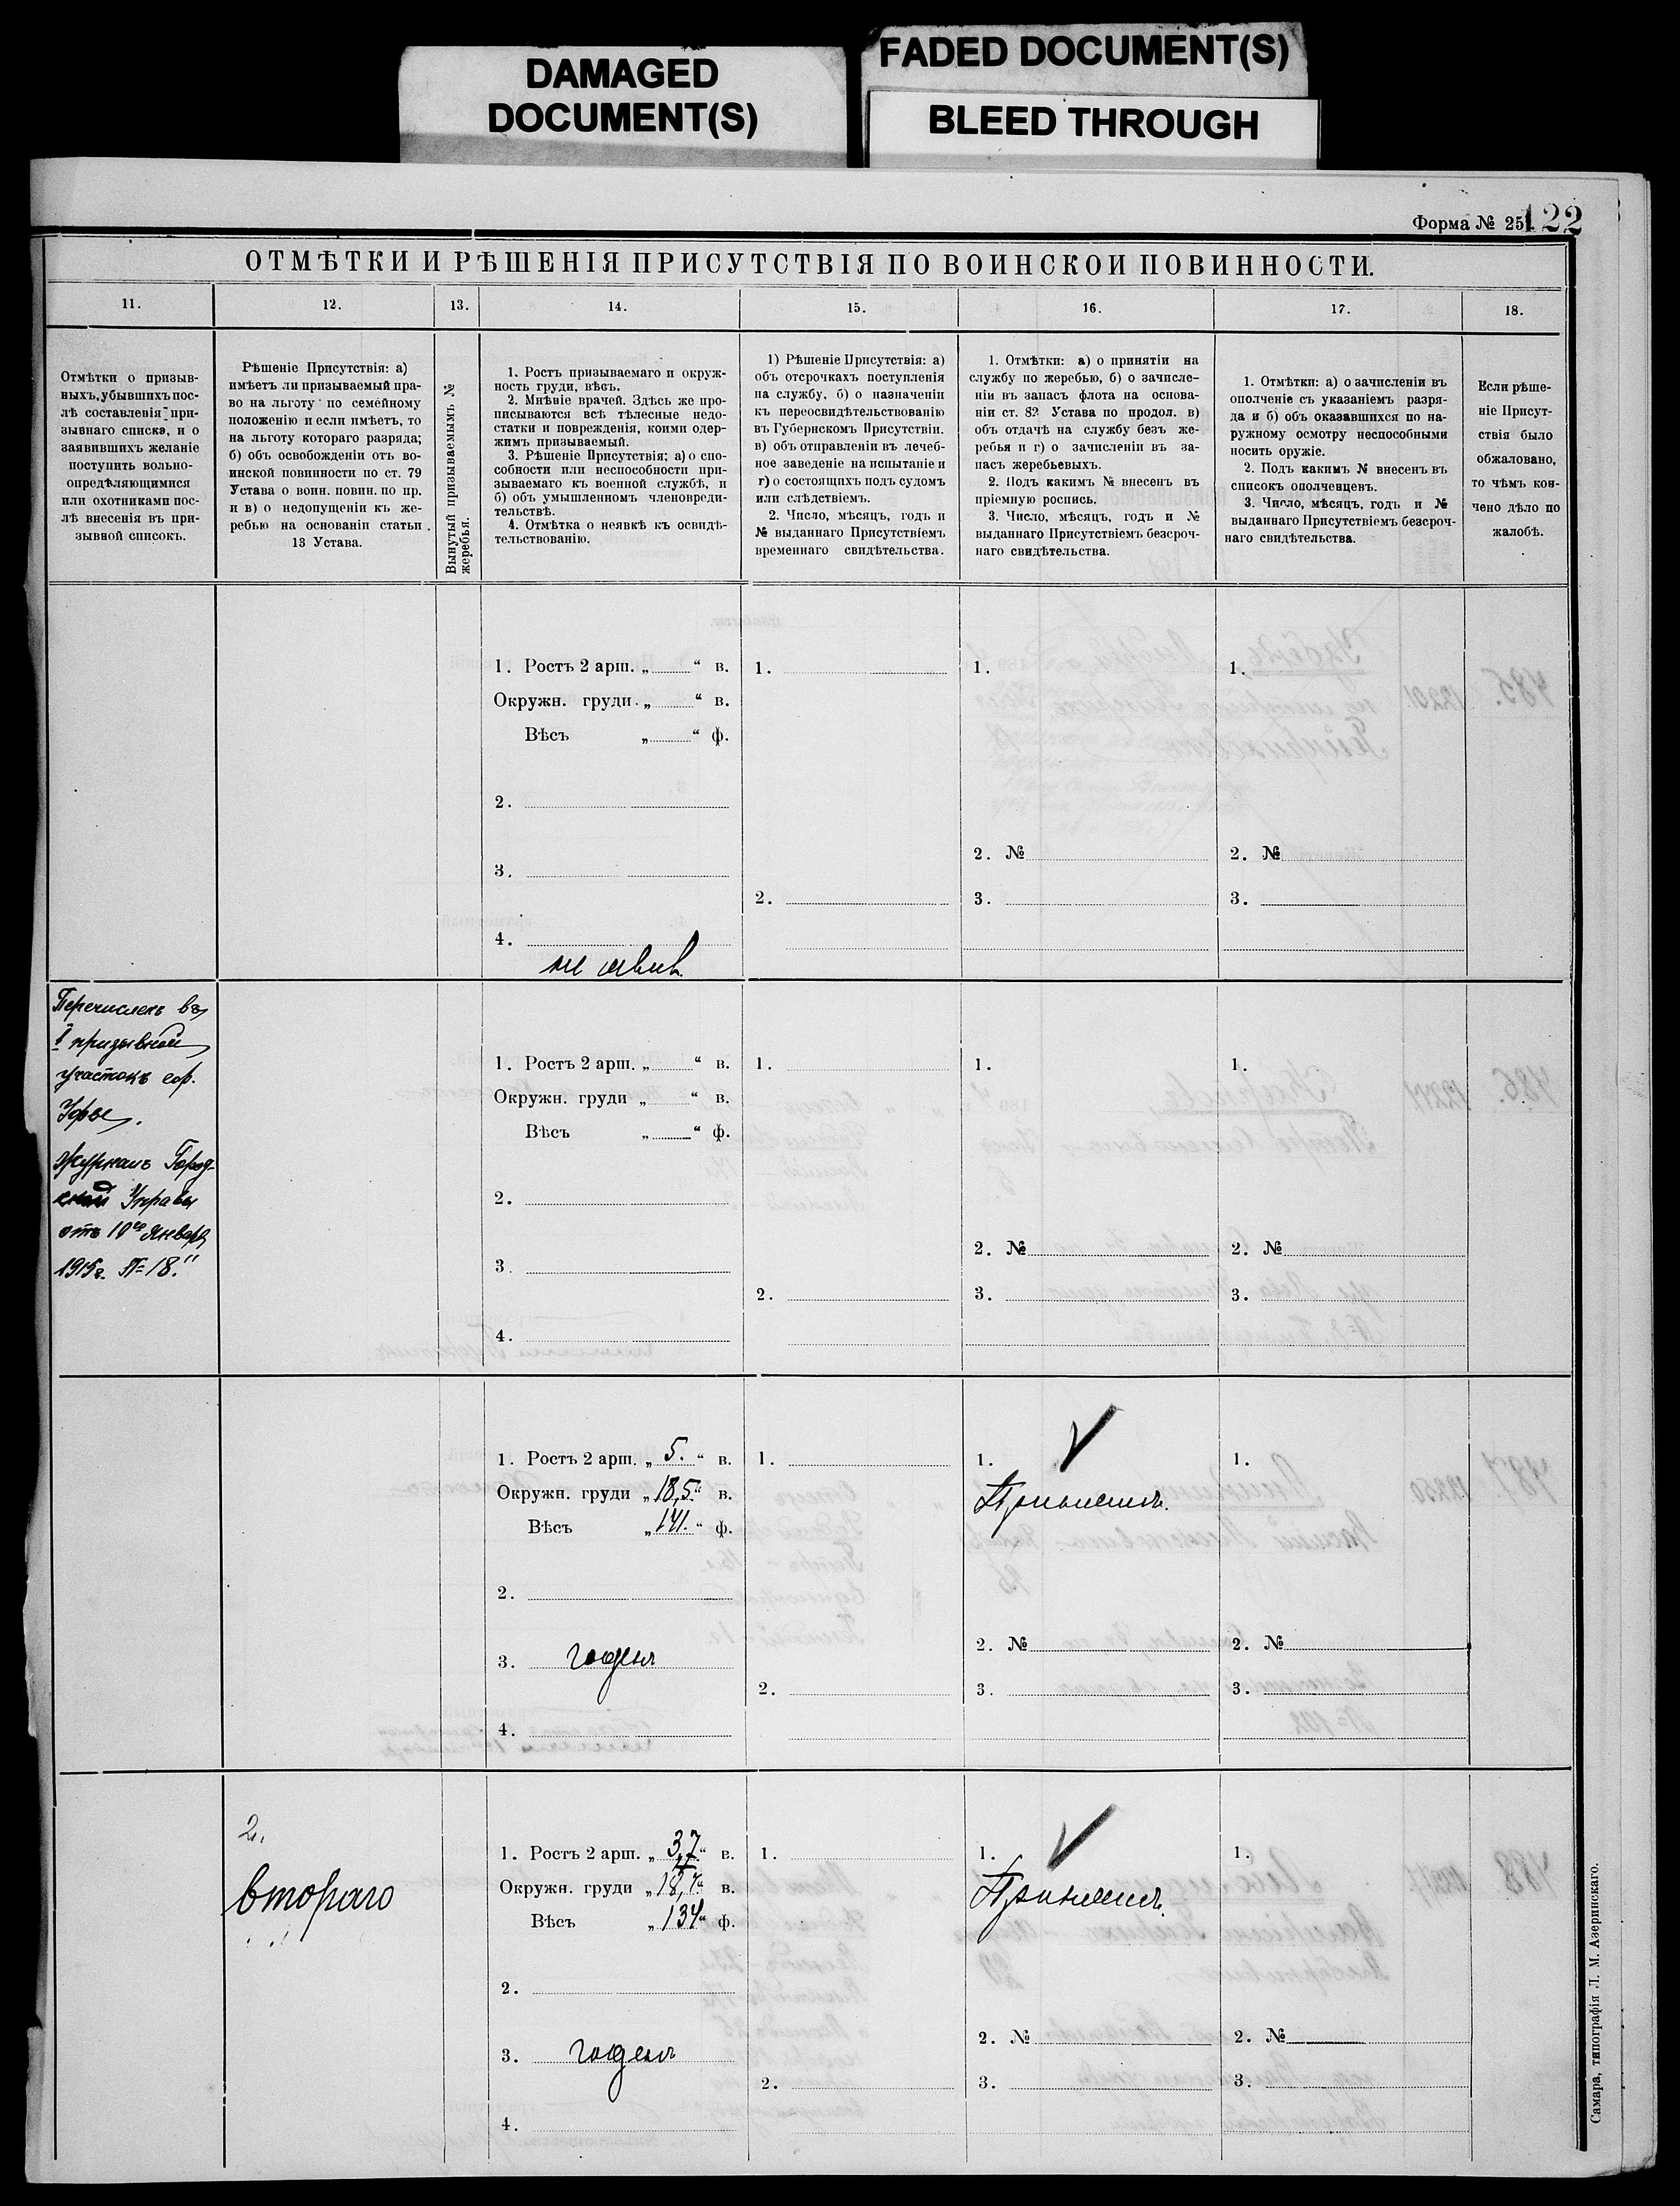 DAMAGED
DOCUMENT(S)
FADED DOCUMENT(S)
BLEED THROUGH
Форма № 25
122
ОТМѢТКИ И РѢШЕНІЯ ПРИСУТСТВІЯ ПО ВОИНСКОЙ ПОВИННОСТИ.
11.
12.
13.
14.
15.
16.
17.
18.
Отмѣтки о призыв-
ныхъ, убывшихъ пос-
лѣ составленія при-
зывнаго списка, и о
заявившихъ желаніе
поступить вольно-
опредѣляющимися
или охотниками пос-
лѣ внесенія въ при-
зывной списокъ.
Рѣшеніе Присутствія: а)
имѣетъ ли призываемый пра-
во на льготу по семейному
положенію и если имѣетъ, то
на льготу котораго разряда;
б) объ освобожденіи отъ во-
инской повинности по ст. 79
Устава о воин. повин. по пр.
и в) о недопущеніи къ же-
ребью на основаніи статьи
13 Устава.
Вынутый призываемымъ №
жеребья.
1. Ростъ призываемаго и окруж-
ность груди, вѣсъ.
2. Мнѣніе врачей. Здѣсь же про-
писываются всѣ тѣлесные недо-
статки и поврежденія, коими одер-
жимъ призываемый.
3. Рѣшеніе Присутствія; а) о спо-
собности или неспособности при-
зываемаго къ военной службѣ, и
б) объ умышленномъ членовреди-
тельствѣ.
4. Отмѣтка о неявкѣ къ освидѣ-
тельствованію.
1) Рѣшеніе Присутствія: а)
объ отсрочкахъ поступленія
на службу, б) о назначеніи
къ переосвидѣтельствованію
въ Губернскомъ Присутствіи.
в) объ отправленіи въ лечеб-
ное заведеніе на испытаніе и
г) о состоящихъ подъ судомъ
или слѣдствіемъ.
2. Число, мѣсяцъ, годъ и
№ выданнаго Присутствіемъ
временнаго свидѣтельства.
1. Отмѣтки: а) о принятіи на
службу по жеребью, б) о зачисле-
ніи въ запасъ флота на основа-
ніи ст. 82 Устава по продол. в)
объ отдачѣ на службу безъ же-
ребья и г) о зачисленіи въ за-
пасъ жеребьевыхъ.
2. Подъ какимъ № внесенъ въ
пріемную роспись.
3. Число, мѣсяцъ, годъ и №
выданнаго Присутствіемъ безсроч-
наго свидѣтельства.
1. Отмѣтки: а) о зачисленіи въ
ополченіе съ указаніемъ разря-
да и б) объ оказавшихся по на-
ружному осмотру неспособными
носить оружіе.
2. Подъ какимъ № внесенъ въ
списокъ ополченцевъ.
3. Число, мѣсяцъ, годъ и №
выданнаго Присутствіемъ безсроч-
наго свидѣтельства.
Если рѣше-
ніе Присут-
ствія было
обжаловано,
то чѣмъ кон-
чено дѣло по
жалобѣ.
1. Ростъ 2 арш. „ “ в.
Окружн. груди „ “ в.
Вѣсъ „ “ ф.
2.
3.
4.
не явив.
1.
2.
1.
2. №
3.
1.
2. №
3.
Перечисленъ въ
1 призывной
участокъ гор.
Уфы.
Журналъ Город-
ской Управы
отъ 10го Января
1915г. № 18."
1. Ростъ 2 арш. „ “ в.
Окружн. груди „ “ в.
Вѣсъ „ “ ф.
2.
3.
4.
1.
2.
1.
2. №
3.
1.
2. №
3.
1. Ростъ 2 арш. „ 5. “ в.
Окружн. груди „ 18,5. “ в.
Вѣсъ „ 141. “ ф.
2.
3. годенъ
4.
1.
2.
1.
Принятъ.
2. №
3.
1.
2. №
3.
2.
втораго
1. Ростъ 2 арш. „ 3,7 “ в.
Окружн. груди „ 18,7 “ в.
Вѣсъ „ 134 “ ф.
2.
3. годенъ
4.
1.
2.
1.
Принятъ.
2. №
3.
1.
2. №
3.
Самара, типографія Л. М. Азеринскаго.